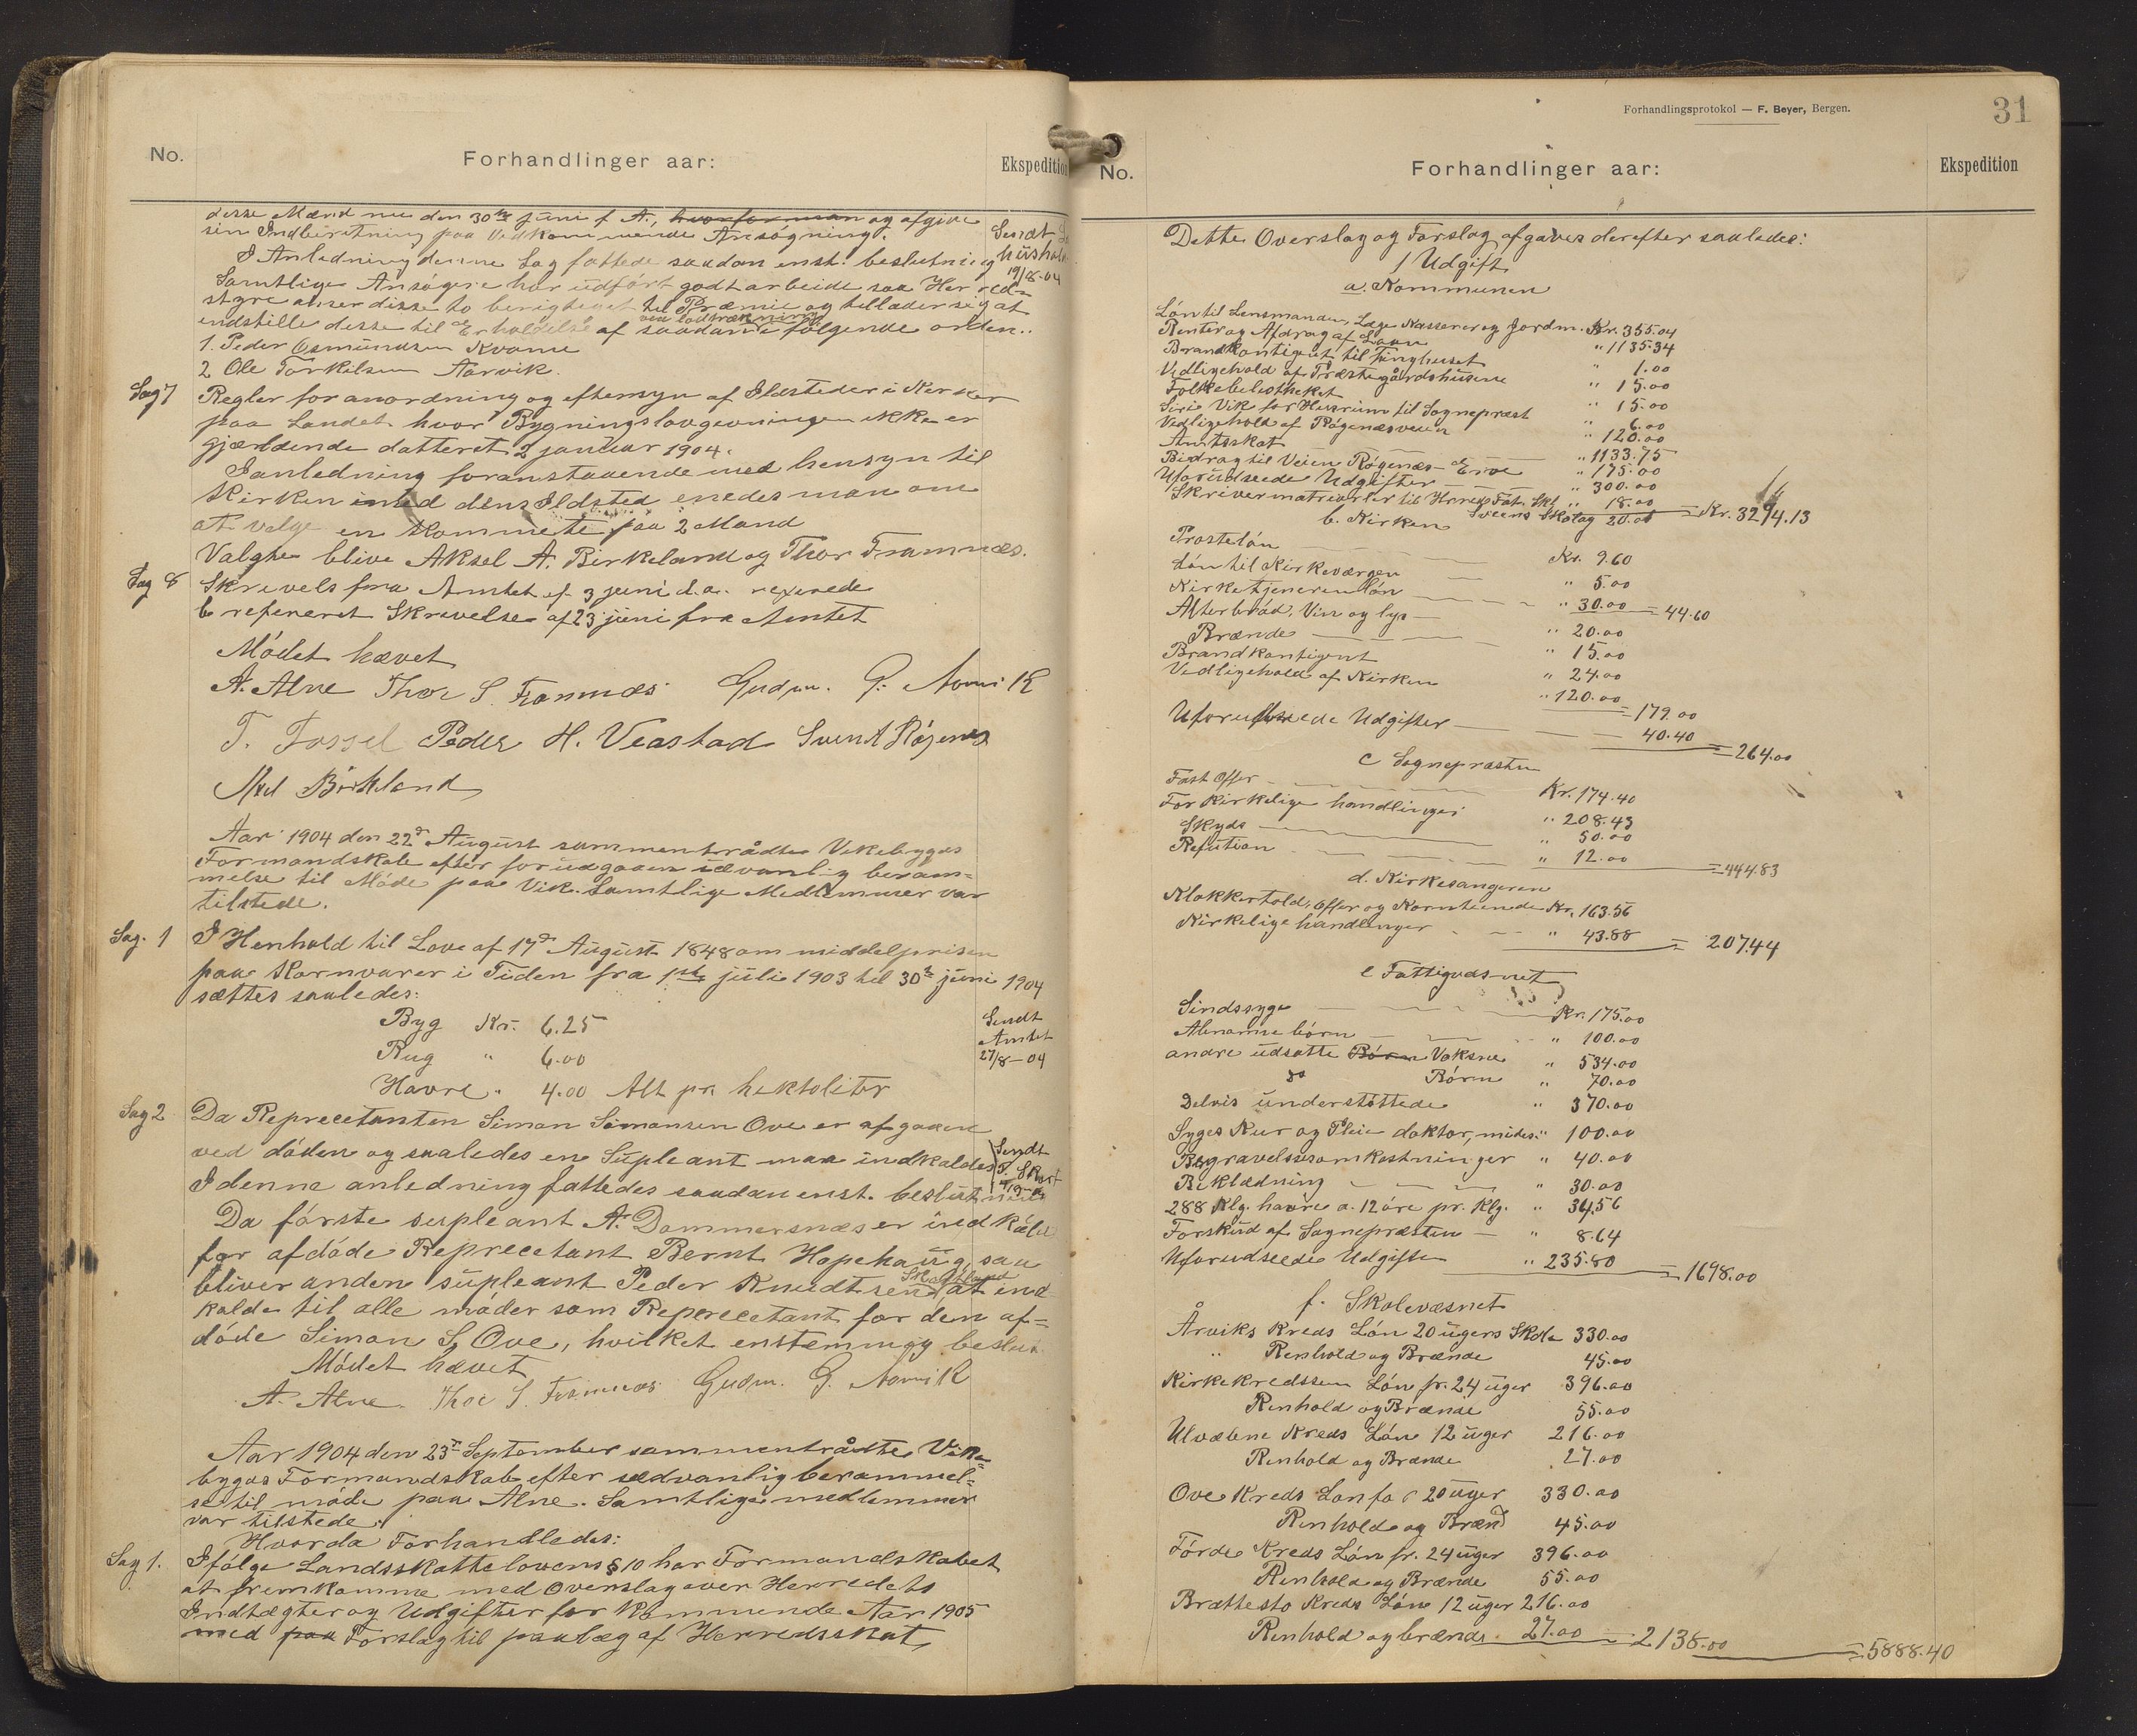 No.
Forhandlinger aar:
Ekspedition
desse Mænd nu den 30te juni f A., og afgive
sin Indberetning paa Vedkommende Ansøgning.
I Anledning denne Sag fattede saadan enst. beslutning
Samtlige Ansøgere har udført godt arbeide saa Herred=
styre anser disse to berigtiget til Præmie og tillader sig at
indstille desse til Erholdelse af saadane følgende orden..
ved lodtrækning
1. Peder Osmundsen Kvame
2 Ole Torkilsen Aarvik.
Sendt
hushold
19/8-04
Sag 7
Regler for anordning og eftersyn af Ildsteder i Kirker
paa Landet hvor Bygningslovgevningen ikke er
gjældende datteret 2 januar 1904.
Ianledning foranstaaende med hensyn til
Kirken med dens Ildsted enedes man om
at velge en Kommete paa 2 Mand
Valghe blive Aksel A. Birkeland og Thor Framnæs.
Sag 8
Skrivels fra Amtet af 3 juni d.a. referede
b refereret Skrivelse af 23 juni fra Amtet
Mødet hævet
A. Alne Thor S. Framnæs Gudm. G. Aarvik
T. Fossel Peder H. Vestad Svend A Røgenes
Axel Birkeland
Aar 1904 den 22de August sammentrådte Vikebygds
Formandskab efter forudgaaen sædvanlig beram=
melse til Møde paa Vik. Samtlige Medlemmer var
tilstede.
Sag. 1
I Henhold til Love af 17de August 1848 om middelprisen
paa Kornvarer i Tiden fra 1ste juli 1903 til 30te juni 1904
sættes saaledes:
Byg Kr. 6.25
Rug " 6.00
Havre " 4.00 Alt pr. hektoliter
Sendt
Amtet
27/8-04
Sag 2
Da Reprecetanten Simon Simonsen Ove er afgaaen
ved døden og saaledes en Supleant maa indkaldes
I denne anledning fattedes saadan enst. beslutning
Sendt
Da første supleant A. Dommersnæs er indkaldt
for afdøde Reprecetant Bernt Hopehaug, saa
bliver anden supleant Peder Knudtsen at ind
Skartland
kalde til alle møder som Reprecetant for den af=
døde Simon S. Ove, hvilket enstemmig beslut.
Mødet hævet
A. Alne. Thor S. Framnæs Gudm. G. Aarvik
Aar 1904 den 23de September sammentrådte Vike-
bygds Formandskab efter sædvanlig berammel=
se til møde paa Alne. Samtlige medlemmer
var tilstede.
Hvorda Forhandledes:
Sag 1.
Ifølge Landsskattelovens § 10 har Formandskabet
at fremkomme med Overslag over Herredets
Indtægter og Udgifter for Kommende Aar 1905
med paa Forslag til paalæg af Herredsskat
Forhandlingsprotokol — F. Beyer, Bergen.
31
No.
Forhandlinger aar:
Ekspedition
Dette Overslag og Forslag afgaves derefter saaledes:
1 Udgift
a. Kommunen
Løn til Lensmanden, Læge Kasserer og Jordm. Kr. 355.04
Renter og Afdrag af Laan " 1135.34
Brandkontigent til Tinghuset " 1.00
Vedligehold af Præstegårdshusene " 15.00
Folkebibliotheket " 15.00
Siri Vik for Husrum til Sognepræst " 6.00
Vedligehold af Røgenesveien " 120.00
Amtsskat " 1133.75
Bidrag til Veien Røgenæs - Erve " 175.00
Uforudseede Udgifter " 300.00
Skrivermatrialer til Herred Fat. Skl " 18.00
Sveens Skolag 20.00 = Kr. 3294.13
b. Kirken
Prosteløn Kr. 9.60
Løn til Kirkeværgen " 5.00
Kirketjeneren løn " 30.00 = 44.60
Alterbrød, Vin og lys " 20.00
Brænde " 15.00
Brandkontigent " 24.00
Vedligehold af Kirken " 120.00 = 179.00
Uforudseede Udgifter 40.40 = 264.00
c Sognepræsten
Fast Offer Kr. 174.40
For Kirkelige handlinger " 208.43
Skyds " 50.00
Refution " 12.00 = 444.83
d. Kirkesangeren
Klokkertold, Offer og Korntiende Kr. 163.56
Kirkelige handlinger " 43.88 = 207.44
e Fattigvæsnet
Sindssyge Kr. 175.00
Abnorme børn " 100.00
andre udsatte Børn Voksne " 534.00
do Børn " 70.00
Delvis understøttede " 370.00
Syges Kur og Pleie doktor, midec. " 100.00
Begravelsesomkostninger " 40.00
Beklædning " 30.00
288 Klg. havre a. 12 øre pr. Klg. " 34.56
Forskud af Sognepræsten " 8.64
Uforudseede Udgifter " 235.80 = 1698.00
f. Skolevæsnet
Årviks Kreds Løn 20 ugers Skole 330.00
" Renhold og Brænde 45.00
Kirkekredsen Løn fr. 24 uger 396.00
Renhold og Brænde 55.00
Ulvæbne Kreds Løn 12 uger 216.00
Renhold og Brænde 27.00
Ove Kreds Løn for 20 uger 330.00
Renhold og Brænd 45.00
Førde Kreds Løn fr. 24 uger 396.00
Renhold og Brænde 55.00
Brattestø Kreds Løn 12 uger 216.00
Renhold og brænde 27.00 = 2138.00 = 5888.40